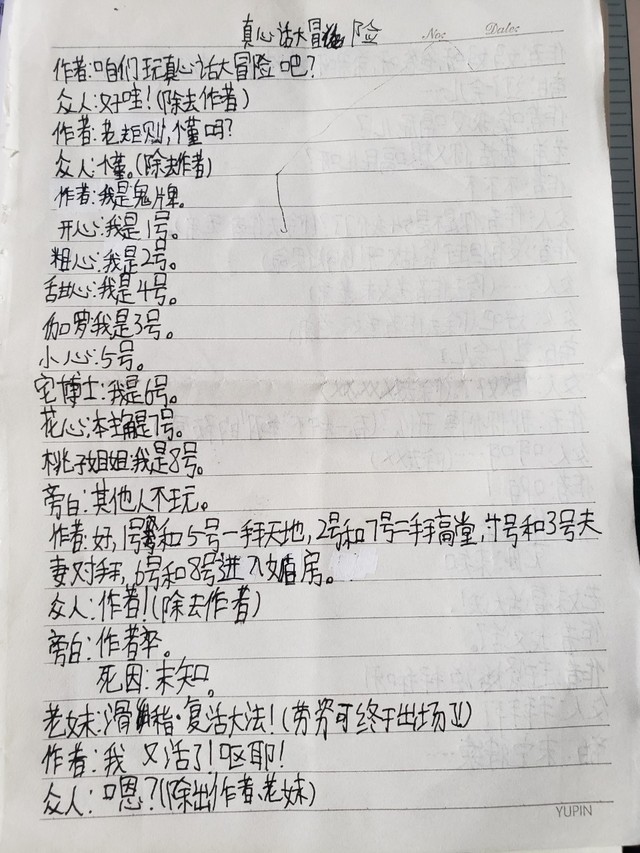 真心话大冒险
No:
Date:
作者:咱们玩真心话大冒险吧?
众人:好哇!(除去作者)
作者:老规则,懂吗?
众人:懂。(除去作者)
作者:我是鬼牌。
开心:我是1号。
粗心:我是2号。
甜心:我是4号。
伽罗:我是3号。
小心:5号。
宅博士:我是6号。
花心:本主角是7号。
桃子姐姐:我是8号。
旁白:其他人不玩。
作者:好,1号和5号一拜天地,2号和7号二拜高堂,4号和3号夫
妻对拜,6号和8号进入婚房。
众人:作者!(除去作者)
旁白:作者卒。
死因:未知。
老妹:滑稽·复活大法!(劳资可终于出场了)
作者:我又活了!呕耶!
众人:嗯?(除出作者、老妹)
YUPIN